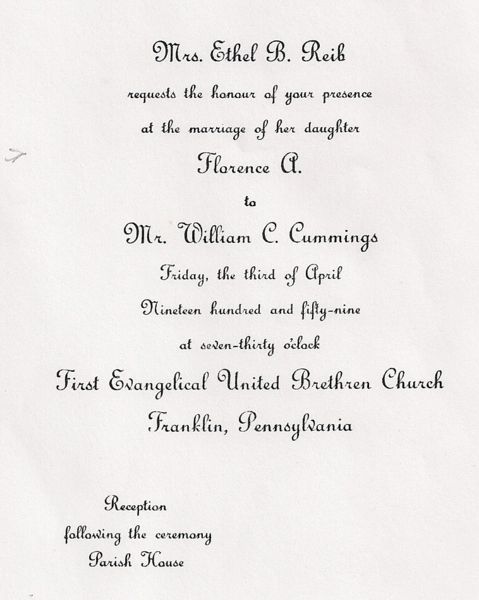 Mrs. Ethel B. Reib
requests the honour of your presence
at the marriage of her daughter
Florence A.
to
Mr. William C. Cummings
Friday, the third of April
Nineteen hundred and fifty-nine
at seven-thirty o'clock
First Evangelical United Brethren Church
Franklin, Pennsylvania
Reception
following the ceremony
Parish House